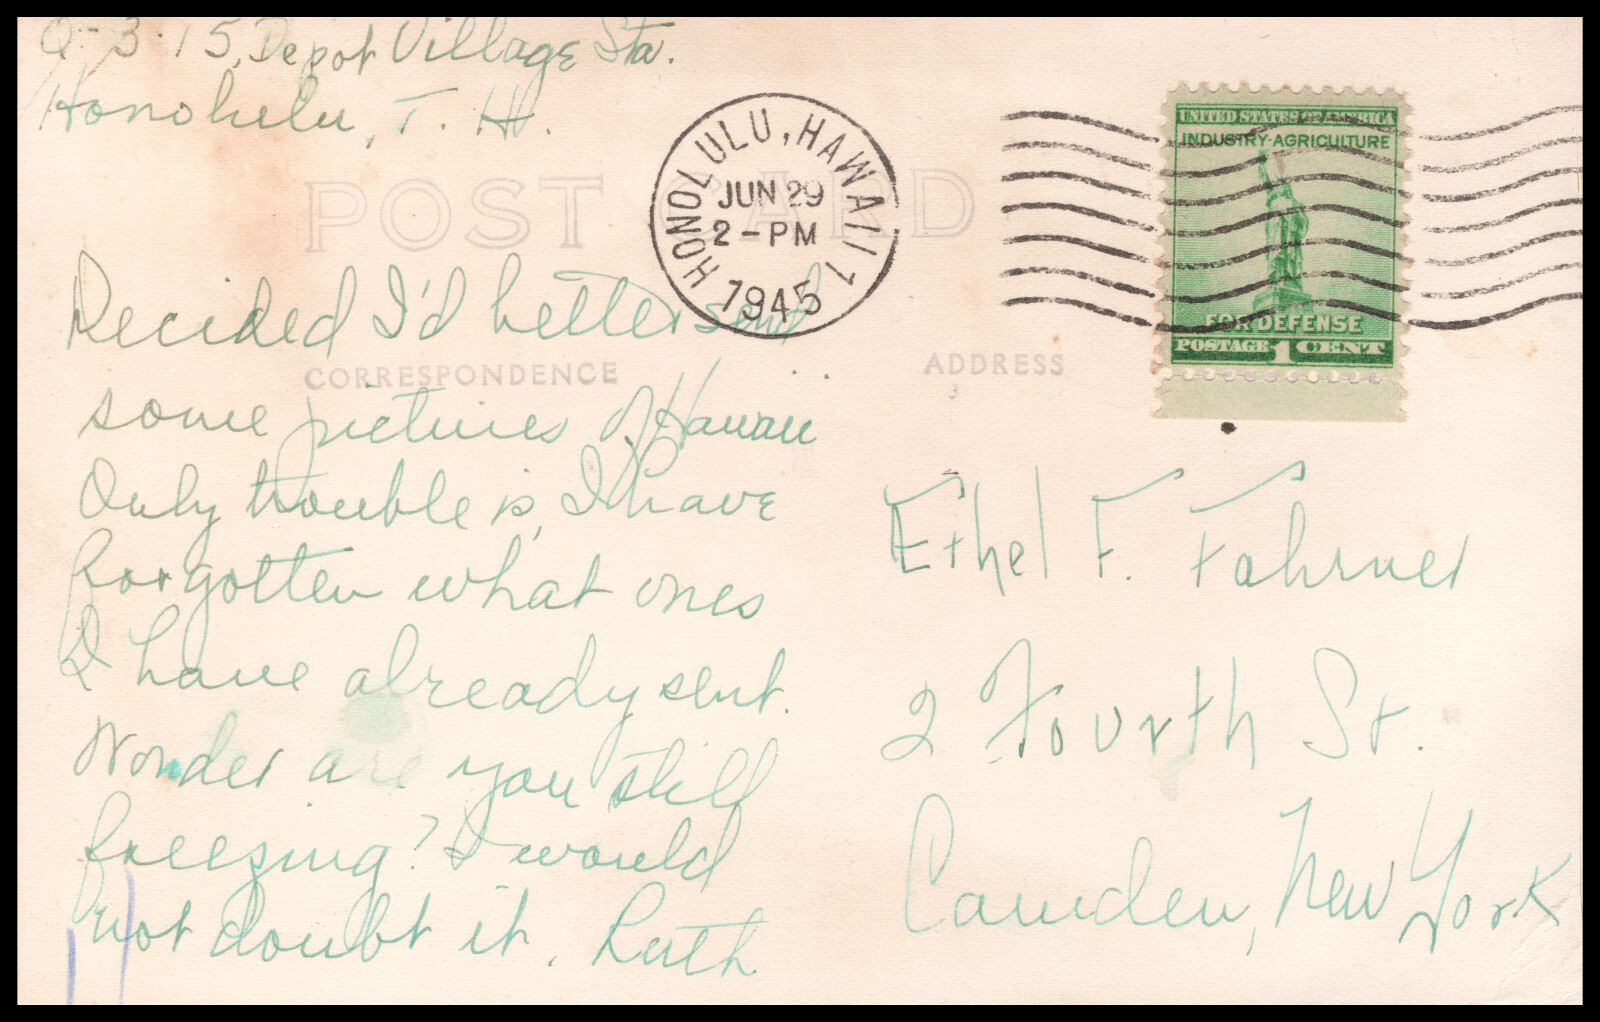 Q-3-15, Depot Village Sta.
Honolulu, T. H.
HONOLULU, HAWAII 1
JUN 29
2-PM
1945
UNITED STATES OF AMERICA
INDUSTRY-AGRICULTURE
FOR DEFENSE
POSTAGE 1 CENT
POST CARD
CORRESPONDENCE
ADDRESS
Decided I'd better send
some pictures of Hawaii
Only trouble is, I have
forgotten what ones
I have already sent.
Wonder are you still
freezing? I would
not doubt it. Ruth
Ethel F. Fahrner
2 Fourth St.
Camden, New York